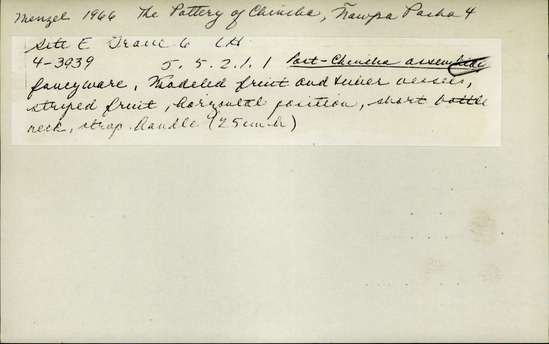 Menzel 1966 The Pottery of Chincha, Ñawpa Pacha 4
Site E Grave 6 LH
4-3939 5.5.2.1.1 Post-Chincha assemblage
fancyware, Modeled fruit and tuber vessels,
striped fruit, horizontal position, short bottle
neck, strap handle (25cm h)